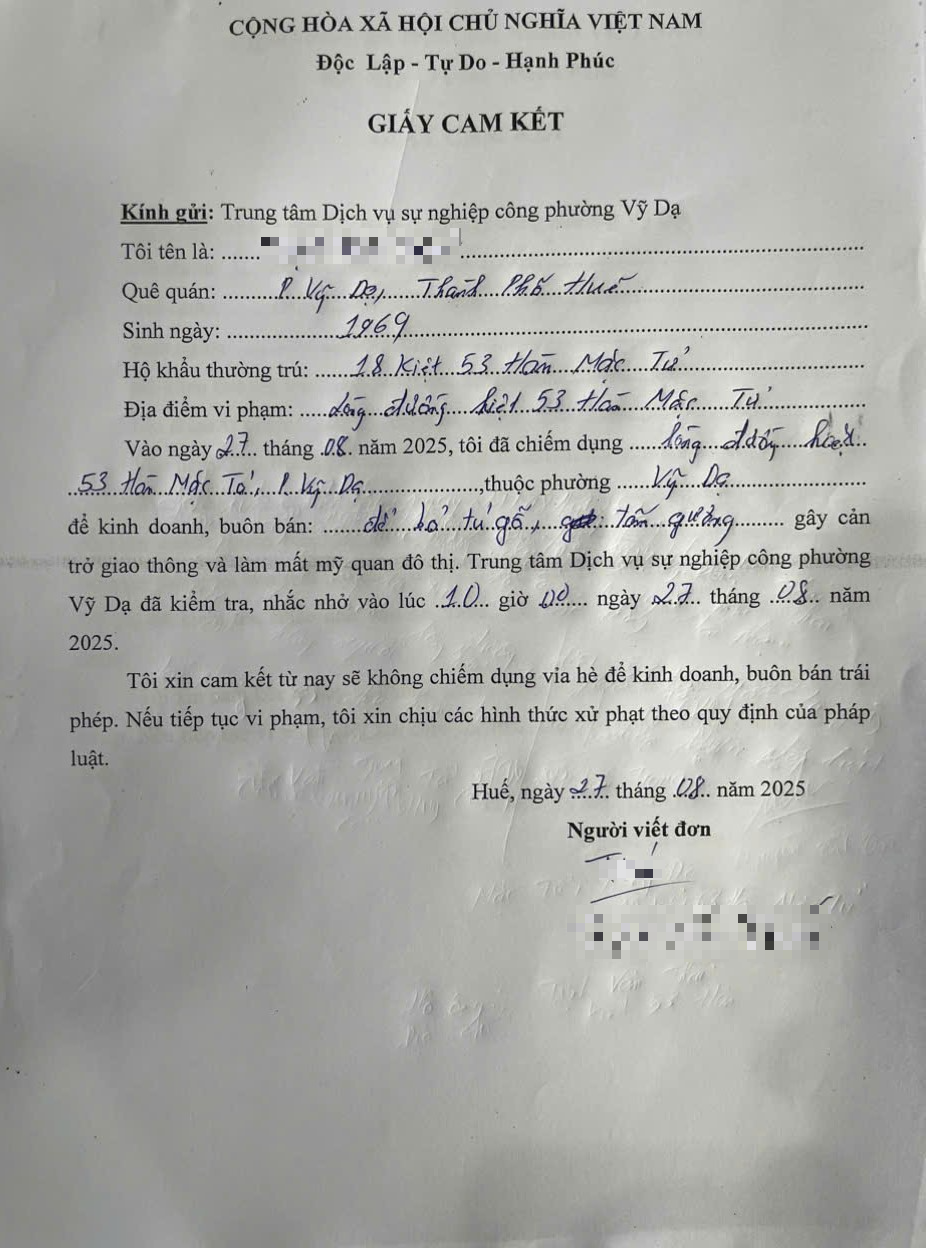 CỘNG HÒA XÃ HỘI CHỦ NGHĨA VIỆT NAM
Độc Lập - Tự Do - Hạnh Phúc
GIẤY CAM KẾT
Kính gửi: Trung tâm Dịch vụ sự nghiệp công phường Vỹ Dạ
Tôi tên là:
Quê quán: P. Vỹ Dạ, Thành Phố Huế
Sinh ngày: 1969
Hộ khẩu thường trú: 18 Kiệt 53 Hàn Mặc Tử
Địa điểm vi phạm: lòng đường kiệt 53 Hàn Mặc Tử
Vào ngày 27 tháng 08 năm 2025, tôi đã chiếm dụng lòng đường kiệt
53 Hàn Mặc Tử, P. Vỹ Dạ, thuộc phường Vỹ Dạ
để kinh doanh, buôn bán: để tủ gỗ, tấm gương gây cản
trở giao thông và làm mất mỹ quan đô thị. Trung tâm Dịch vụ sự nghiệp công phường
Vỹ Dạ đã kiểm tra, nhắc nhở vào lúc 10 giờ 00 ngày 27 tháng 08 năm
2025.
Tôi xin cam kết từ nay sẽ không chiếm dụng vỉa hè để kinh doanh, buôn bán trái
phép. Nếu tiếp tục vi phạm, tôi xin chịu các hình thức xử phạt theo quy định của pháp
luật.
Huế, ngày 27 tháng 08 năm 2025
Người viết đơn